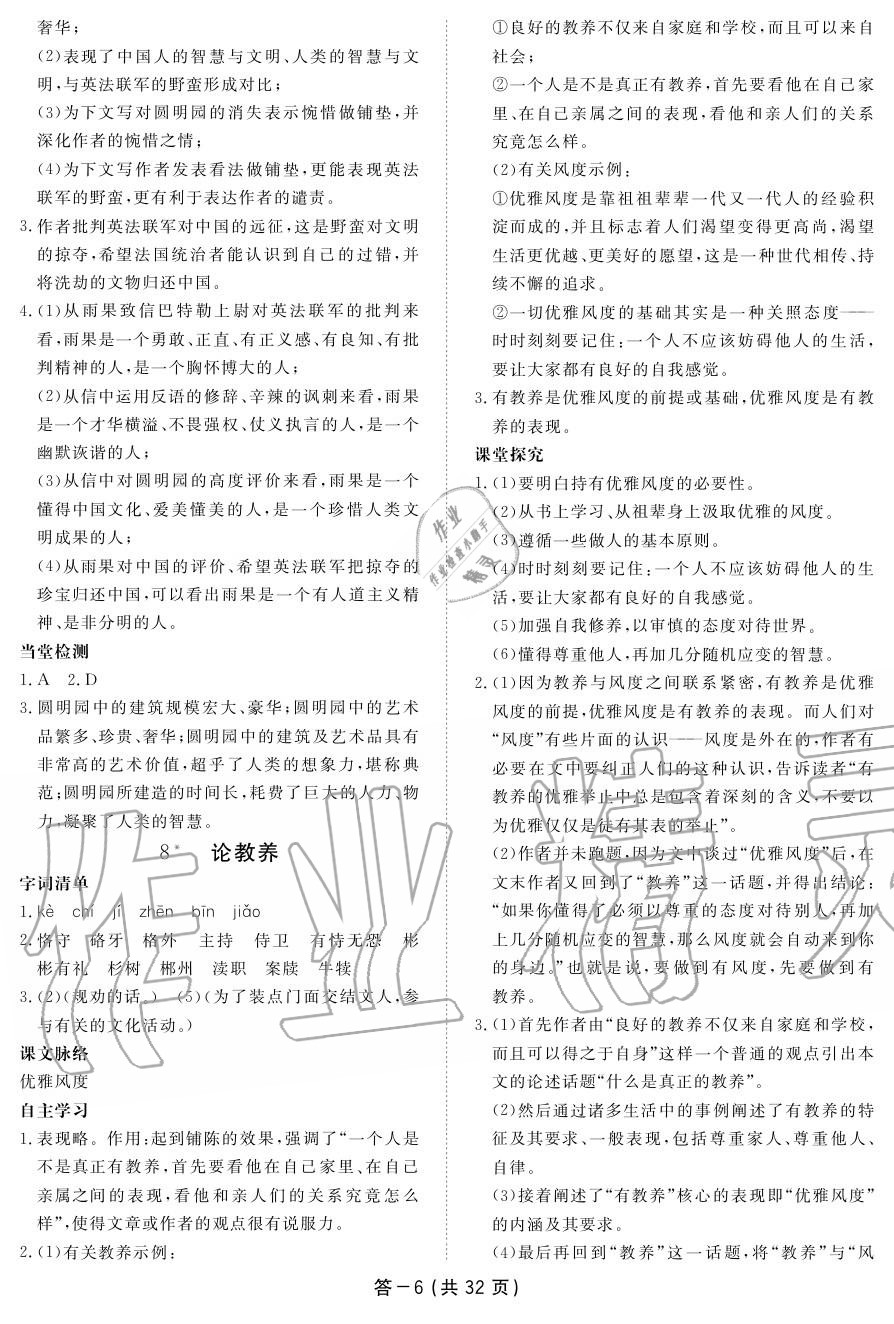 奢华;
(2)表现了中国人的智慧与文明、人类的智慧与文
明,与英法联军的野蛮形成对比;
(3)为下文写对圆明园的消失表示惋惜做铺垫,并
深化作者的惋惜之情;
(4)为下文写作者发表看法做铺垫,更能表现英法
联军的野蛮,更有利于表达作者的谴责。
3.作者批判英法联军对中国的远征,这是野蛮对文明
的掠夺,希望法国统治者能认识到自己的过错,并
将洗劫的文物归还中国。
4.(1)从雨果致信巴特勒上尉对英法联军的批判来
看,雨果是一个勇敢、正直、有正义感、有良知、有批
判精神的人,是一个胸怀博大的人;
(2)从信中运用反语的修辞、辛辣的讽刺来看,雨果
是一个才华横溢、不畏强权、仗义执言的人,是一个
幽默诙谐的人;
(3)从信中对圆明园的高度评价来看,雨果是一个
懂得中国文化、爱美懂美的人,是一个珍惜人类文
明成果的人;
(4)从雨果对中国的评价、希望英法联军把掠夺的
珍宝归还中国,可以看出雨果是一个有人道主义精
神、是非分明的人。
当堂检测
1. A 2. D
3.圆明园中的建筑规模宏大、豪华;圆明园中的艺术
品繁多、珍贵、奢华;圆明园中的建筑及艺术品具有
非常高的艺术价值,超乎了人类的想象力,堪称典
范;圆明园所建造的时间长,耗费了巨大的人力、物
力,凝聚了人类的智慧。
8* 论教养
字词清单
1. kè chǐ jí zhēn bīn jiǎo
2.恪守 硌牙 格外 主持 侍卫 有恃无恐 彬
彬有礼 杉树 郴州 渎职 案牍 牛犊
3.(2)(规劝的话。) (5)(为了装点门面交结文人,参
与有关的文化活动。)
课文脉络
优雅风度
自主学习
1.表现略。作用:起到铺陈的效果,强调了“一个人是
不是真正有教养,首先要看他在自己家里、在自己
亲属之间的表现,看他和亲人们的关系究竟怎么
样”,使得文章或作者的观点很有说服力。
2.(1)有关教养示例:
①良好的教养不仅来自家庭和学校,而且可以来自
社会;
②一个人是不是真正有教养,首先要看他在自己家
里、在自己亲属之间的表现,看他和亲人们的关系
究竟怎么样。
(2)有关风度示例:
①优雅风度是靠祖祖辈辈一代又一代人的经验积
淀而成的,并且标志着人们渴望变得更高尚,渴望
生活更优越、更美好的愿望,这是一种世代相传、持
续不懈的追求。
②一切优雅风度的基础其实是一种关照态度——
时时刻刻要记住:一个人不应该妨碍他人的生活,
要让大家都有良好的自我感觉。
3.有教养是优雅风度的前提或基础,优雅风度是有教
养的表现。
课堂探究
1.(1)要明白持有优雅风度的必要性。
(2)从书上学习、从祖辈身上汲取优雅的风度。
(3)遵循一些做人的基本原则。
(4)时时刻刻要记住:一个人不应该妨碍他人的生
活,要让大家都有良好的自我感觉。
(5)加强自我修养,以审慎的态度对待世界。
(6)懂得尊重他人,再加几分随机应变的智慧。
2.(1)因为教养与风度之间联系紧密,有教养是优雅
风度的前提,优雅风度是有教养的表现。而人们对
“风度”有些片面的认识——风度是外在的,作者有
必要在文中要纠正人们的这种认识,告诉读者“有
教养的优雅举止中总是包含着深刻的含义,不要以
为优雅仅仅是徒有其表的举止”。
(2)作者并未跑题,因为文中谈过“优雅风度”后,在
文末作者又回到了“教养”这一话题,并得出结论:
“如果你懂得了必须以尊重的态度对待别人,再加
上几分随机应变的智慧,那么风度就会自动来到你
的身边。”也就是说,要做到有风度,先要做到有
教养。
3.(1)首先作者由“良好的教养不仅来自家庭和学校,
而且可以得之于自身”这样一个普通的观点引出本
文的论述话题“什么是真正的教养”。
(2)然后通过诸多生活中的事例阐述了有教养的特
征及其要求、一般表现,包括尊重家人、尊重他人、
自律。
(3)接着阐述了“有教养”核心的表现即“优雅风度”
的内涵及其要求。
(4)最后再回到“教养”这一话题,将“教养”与“风
答－6(共 32 页)
作业
作业检查小助手
精灵
作业精灵